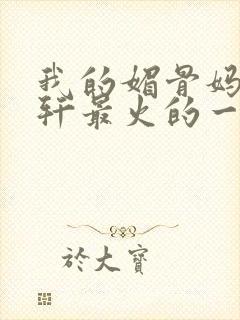 我的媚骨妈
轩最火的一
於大寶